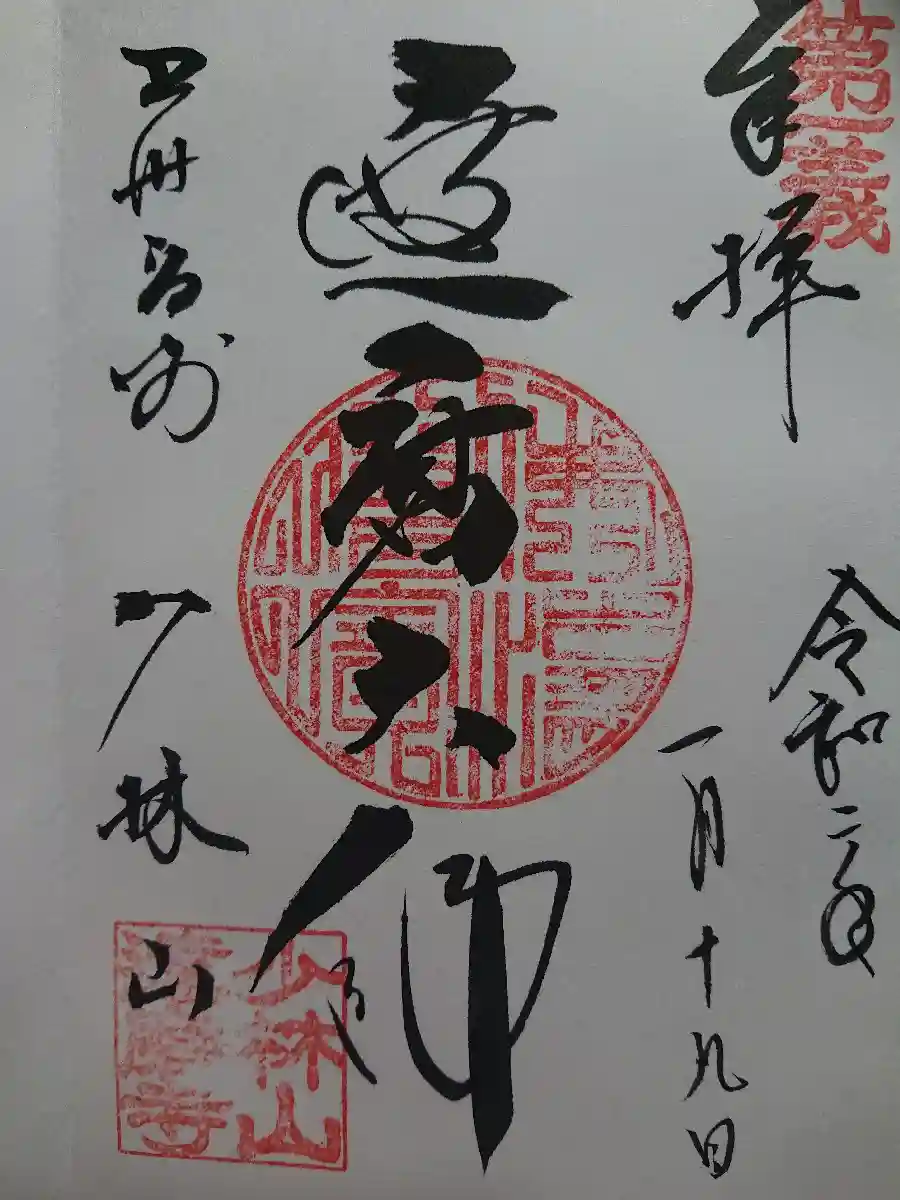 第一義
奉拝
令和二年
一月十九日
達磨大師
上州高崎
少林山
少林山
達磨寺